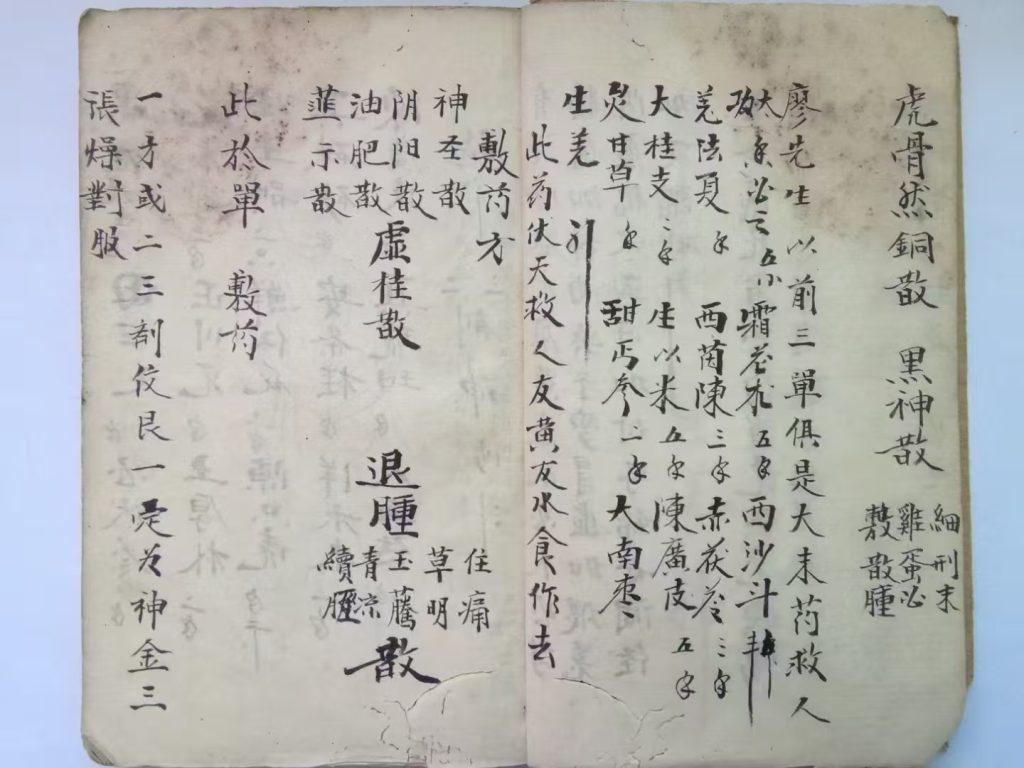 虎骨然銅散 黑神散
細刑末
雞蛋必
散腫
廖先生以前三單俱是大末芍救人
太 五小 霜 五 西沙斗
羌法夏 西茵陳三 赤茯苓三
大桂支二 生以米五 陳廣皮五
炙甘草 甜丐参二 大南枣
生羌引
此药伏天救人友黄友水食作去
敷芍方
神圣散
阴阳散 虛桂散
油肥散
韮示散
退腫 散
住痛
草明
玉騰
青凉
續
此於單 敷芍
一方或二三剂伩艮一 神金三
張燥對服